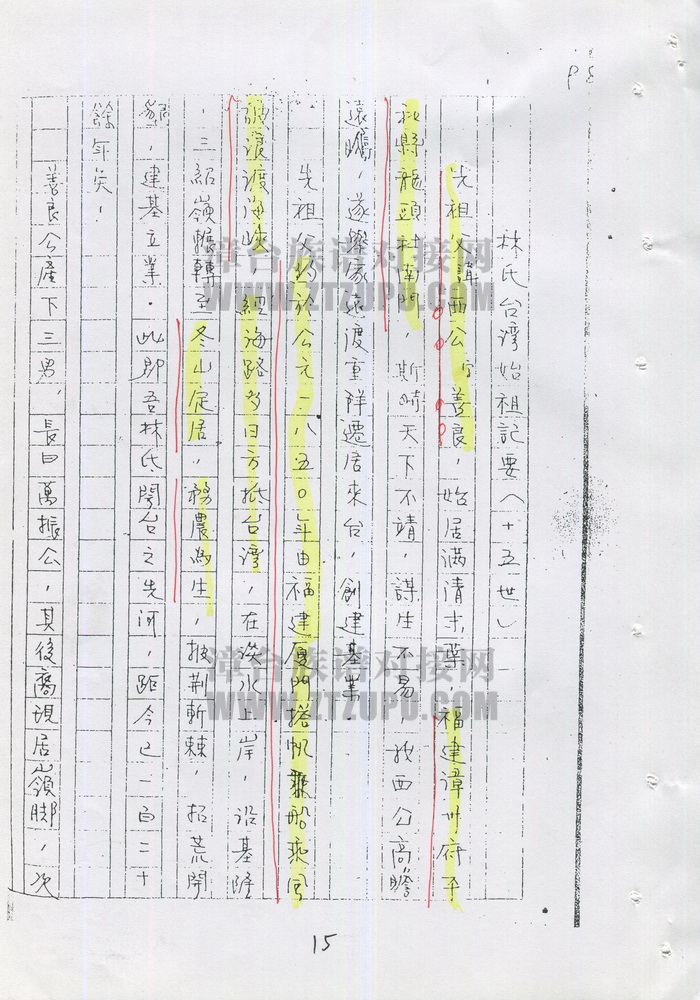 林氏台灣始祖記要(十五世)
先祖父諱西公、字善良,始居滿清末葉福建漳州府平
和縣龍頭村南門,斯時天下不靖,謀生不易,我西公高瞻
遠矚,遂舉家遠渡重洋遷居來台,創建基業
先祖父約於公元一八五〇年由福建厦門搭帆乘船乘風
破浪渡海峽,經海路多日方抵台灣,在淡水上岸,沿基隆
,三紹嶺輾轉至冬山定居,務農為生,披荆斬棘,拓荒開
,建基立業。此即吾林氏開台之先河,距今已一百二十
餘年矣,
善良公產下三男,長曰萬振公,其後裔現居嶺脚,次
15
漳台族谱对接网
WWW.ZTZUPU.COM
漳台族谱对接网
WWW.ZTZUPU.COM